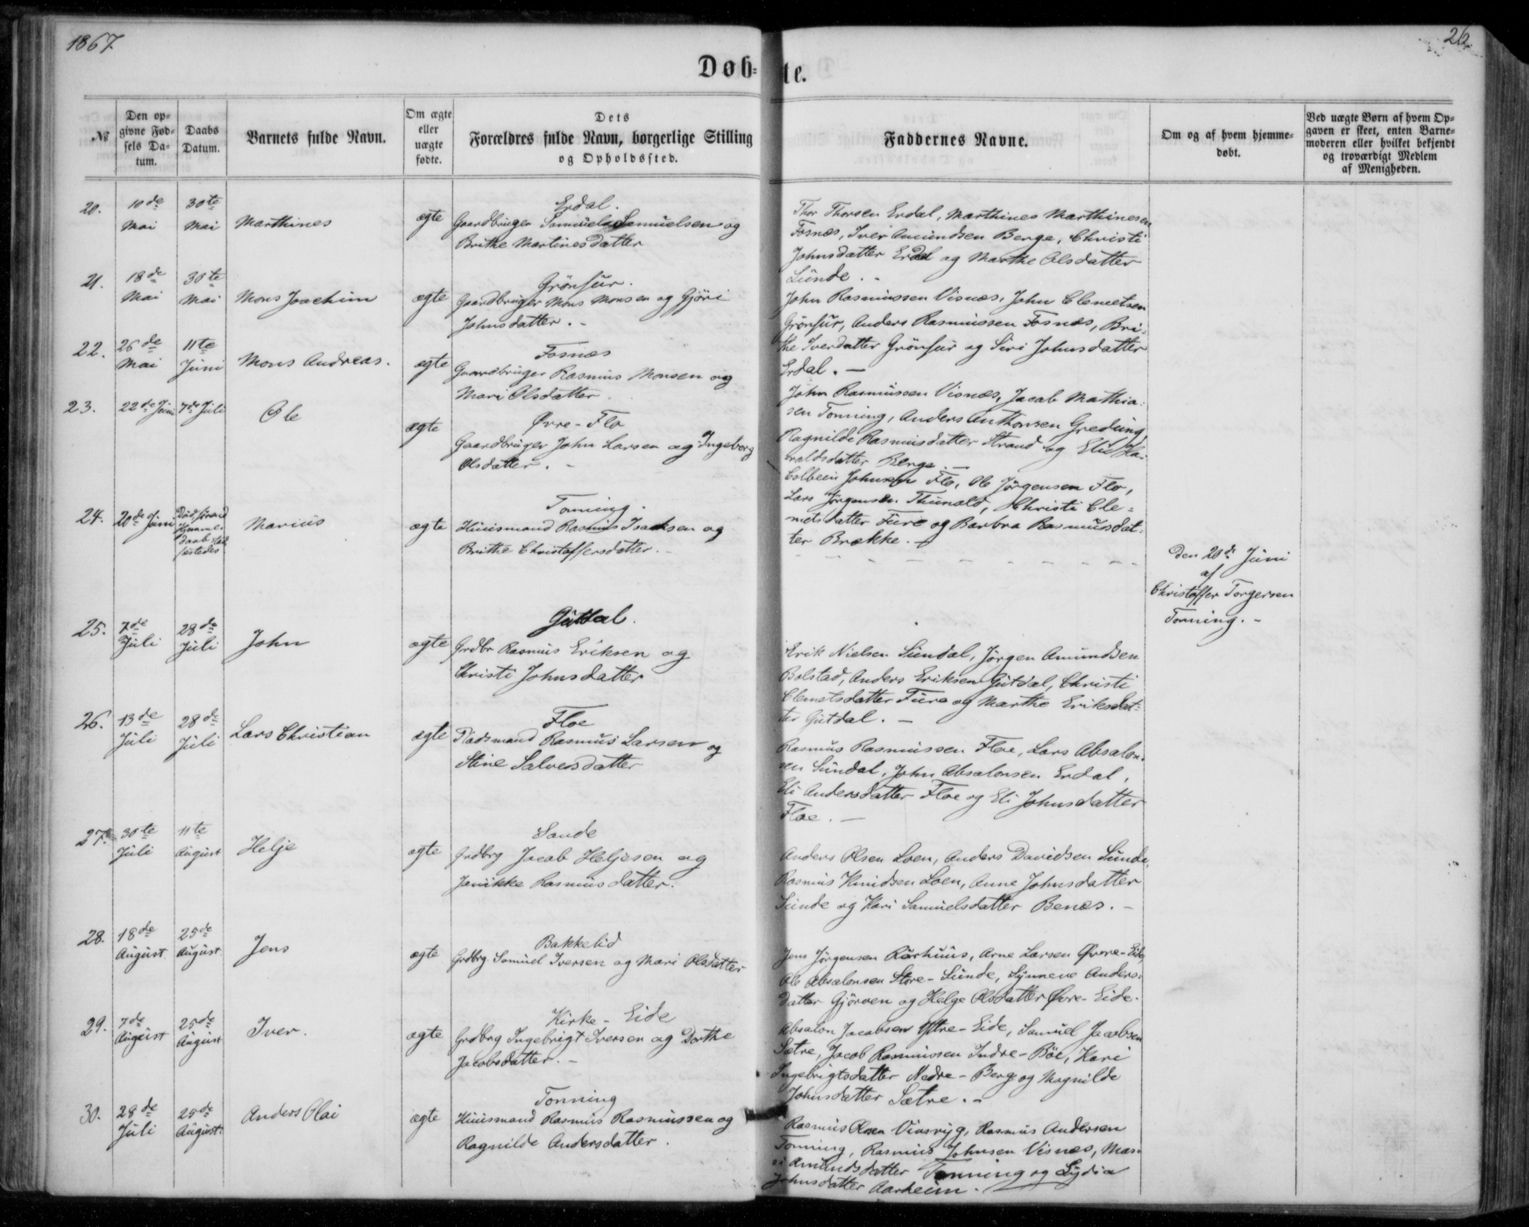 1867
26
Døb=te.
№
Den op=
givne Fød=
sels Da=
tum.
Daabs
Datum.
Barnets fulde Navn.
Om ægte
eller
uægte
fødte.
Dets
Forældres fulde Navn, borgerlige Stilling
og Opholdssted.
Faddernes Navne.
Om og af hvem hjemme=
døbt.
Ved uægte Børn af hvem Op=
gaven er skeet, enten Barne=
moderen eller hvilket bekjendt
og troværdigt Medlem
af Menigheden.
20.
10de
Mai
30te
Mai
Marthines
ægte
Erdal.
Gaardbruger Samuel Samuelsen og
Brithe Martinesdatter
Thor Thorsen Erdal, Marthines Marthinesen
Fosnæs, Iver Amundsen Berge, Christi
Johnsdatter Erdal og Marthe Olsdatter
Sunde. -
21.
18de
Mai
30te
Mai
Mons Joachim
ægte
Grønfur.
Gaardbruger Mons Monsen og Gjøri
Johnsdatter. -
John Rasmussen Visnæs, John Clemetsen
Grønfur, Anders Rasmussen Fosnæs, Bri=
the Iversdatter Grønfur og Siri Johnsdatter
Erdal. -
22.
26de
Mai
11te
Juni
Mons Andreas.
ægte
Fosnæs
Gaardbruger Rasmus Monsen og
Mari Olsdatter
John Rasmussen Visnæs, Jacob Mathia=
sen Tonning, Anders Anthonsen Gredung
Ragnilde Rasmusdatter Strand og Eli Ha=
raldsdatter Berge. -
23.
22de Juni
7de Juli
Ole
ægte
Øvre-Flo
Gaardbruger John Larsen og Ingeborg
Olsdatter. -
Colbein Johnsen Flo, Ole Jørgensen Flo,
Lars Jørgensen Thunald, Christi Cle=
metsdatter Fure og Barbra Rasmusdat=
ter Brække. -
24.
20de Juni
Død førend
Daab
Marius
ægte
Tonning.
Huusmand Rasmus Isaksen og
Brithe Christoffersdatter.
Den 20de Juni
af
Christoffer Torgersen
Tonning. -
25.
7de
Juli
28de
Juli
John
ægte
Gutdal.
Grdbr Rasmus Eriksen og
Christi Johnsdatter
Erik Nielsen Sundal, Jørgen Amundsen
Bolstad, Anders Eriksen Gutdal, Christi
Clemetsdatter Fure og Marthe Eriksdat=
ter Gutdal. -
26.
13de
Juli
28de
Juli
Lars Christian
ægte
Floe
Pladsmand Rasmus Larsen og
Stine Salversdatter
Rasmus Rasmussen Floe, Lars Absalon=
sen Sundal, John Absalonsen Erdal,
Eli Andersdatter Floe og Eli Johnsdatter
Floe. -
27.
30te
Juli
11te
August
Helje
ægte
Sande
Grdbrg Jacob Heljesen og
Jannikke Rasmusdatter.
Anders Olsen Loen, Anders Davidsen Sunde,
Rasmus Knudsen Loen, Anne Johnsdatter
Sunde og Kari Samuelsdatter Benæs. -
28.
18de
August
25de
August
Jens
ægte
Bakkelid
Grdbrg Samuel Iversen og Mari Olsdatter
Jens Jørgensen Rørhuus, Arne Larsen Øvre-Eide,
Ole Absalonsen Store-Sunde, Synneve Anders=
datter Gjørven og Helge Olsdatter Øvre-Eide.
29.
7de
August
25de
August
Iver.
ægte
Kirke-Eide
Grdbrg Ingebrigt Iversen og Dorthe
Jacobsdatter. -
Absalon Jacobsen Ytre-Eide, Samuel Jacobsen
Sætre, Jacob Rasmussen Indre-Bøe, Kari
Ingebrigtsdatter Nedre-Berge og Magnilde
Johnsdatter Sætre. -
30.
28de
Juli
25de
August.
Anders Olai
ægte
Tonning
Huusmand Rasmus Rasmussen og
Ragnilde Andersdatter.
Rasmus Olsen Vinsryg, Rasmus Andersen
Tonning, Rasmus Johnsen Visnæs, Mar=
i Amundsdatter Tonning og Lydia
Johnsdatter Aarheim. -